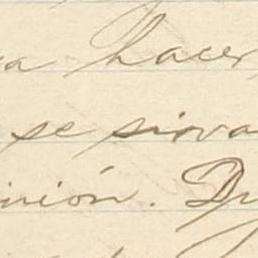 a hacer
se sirva
inión. Di